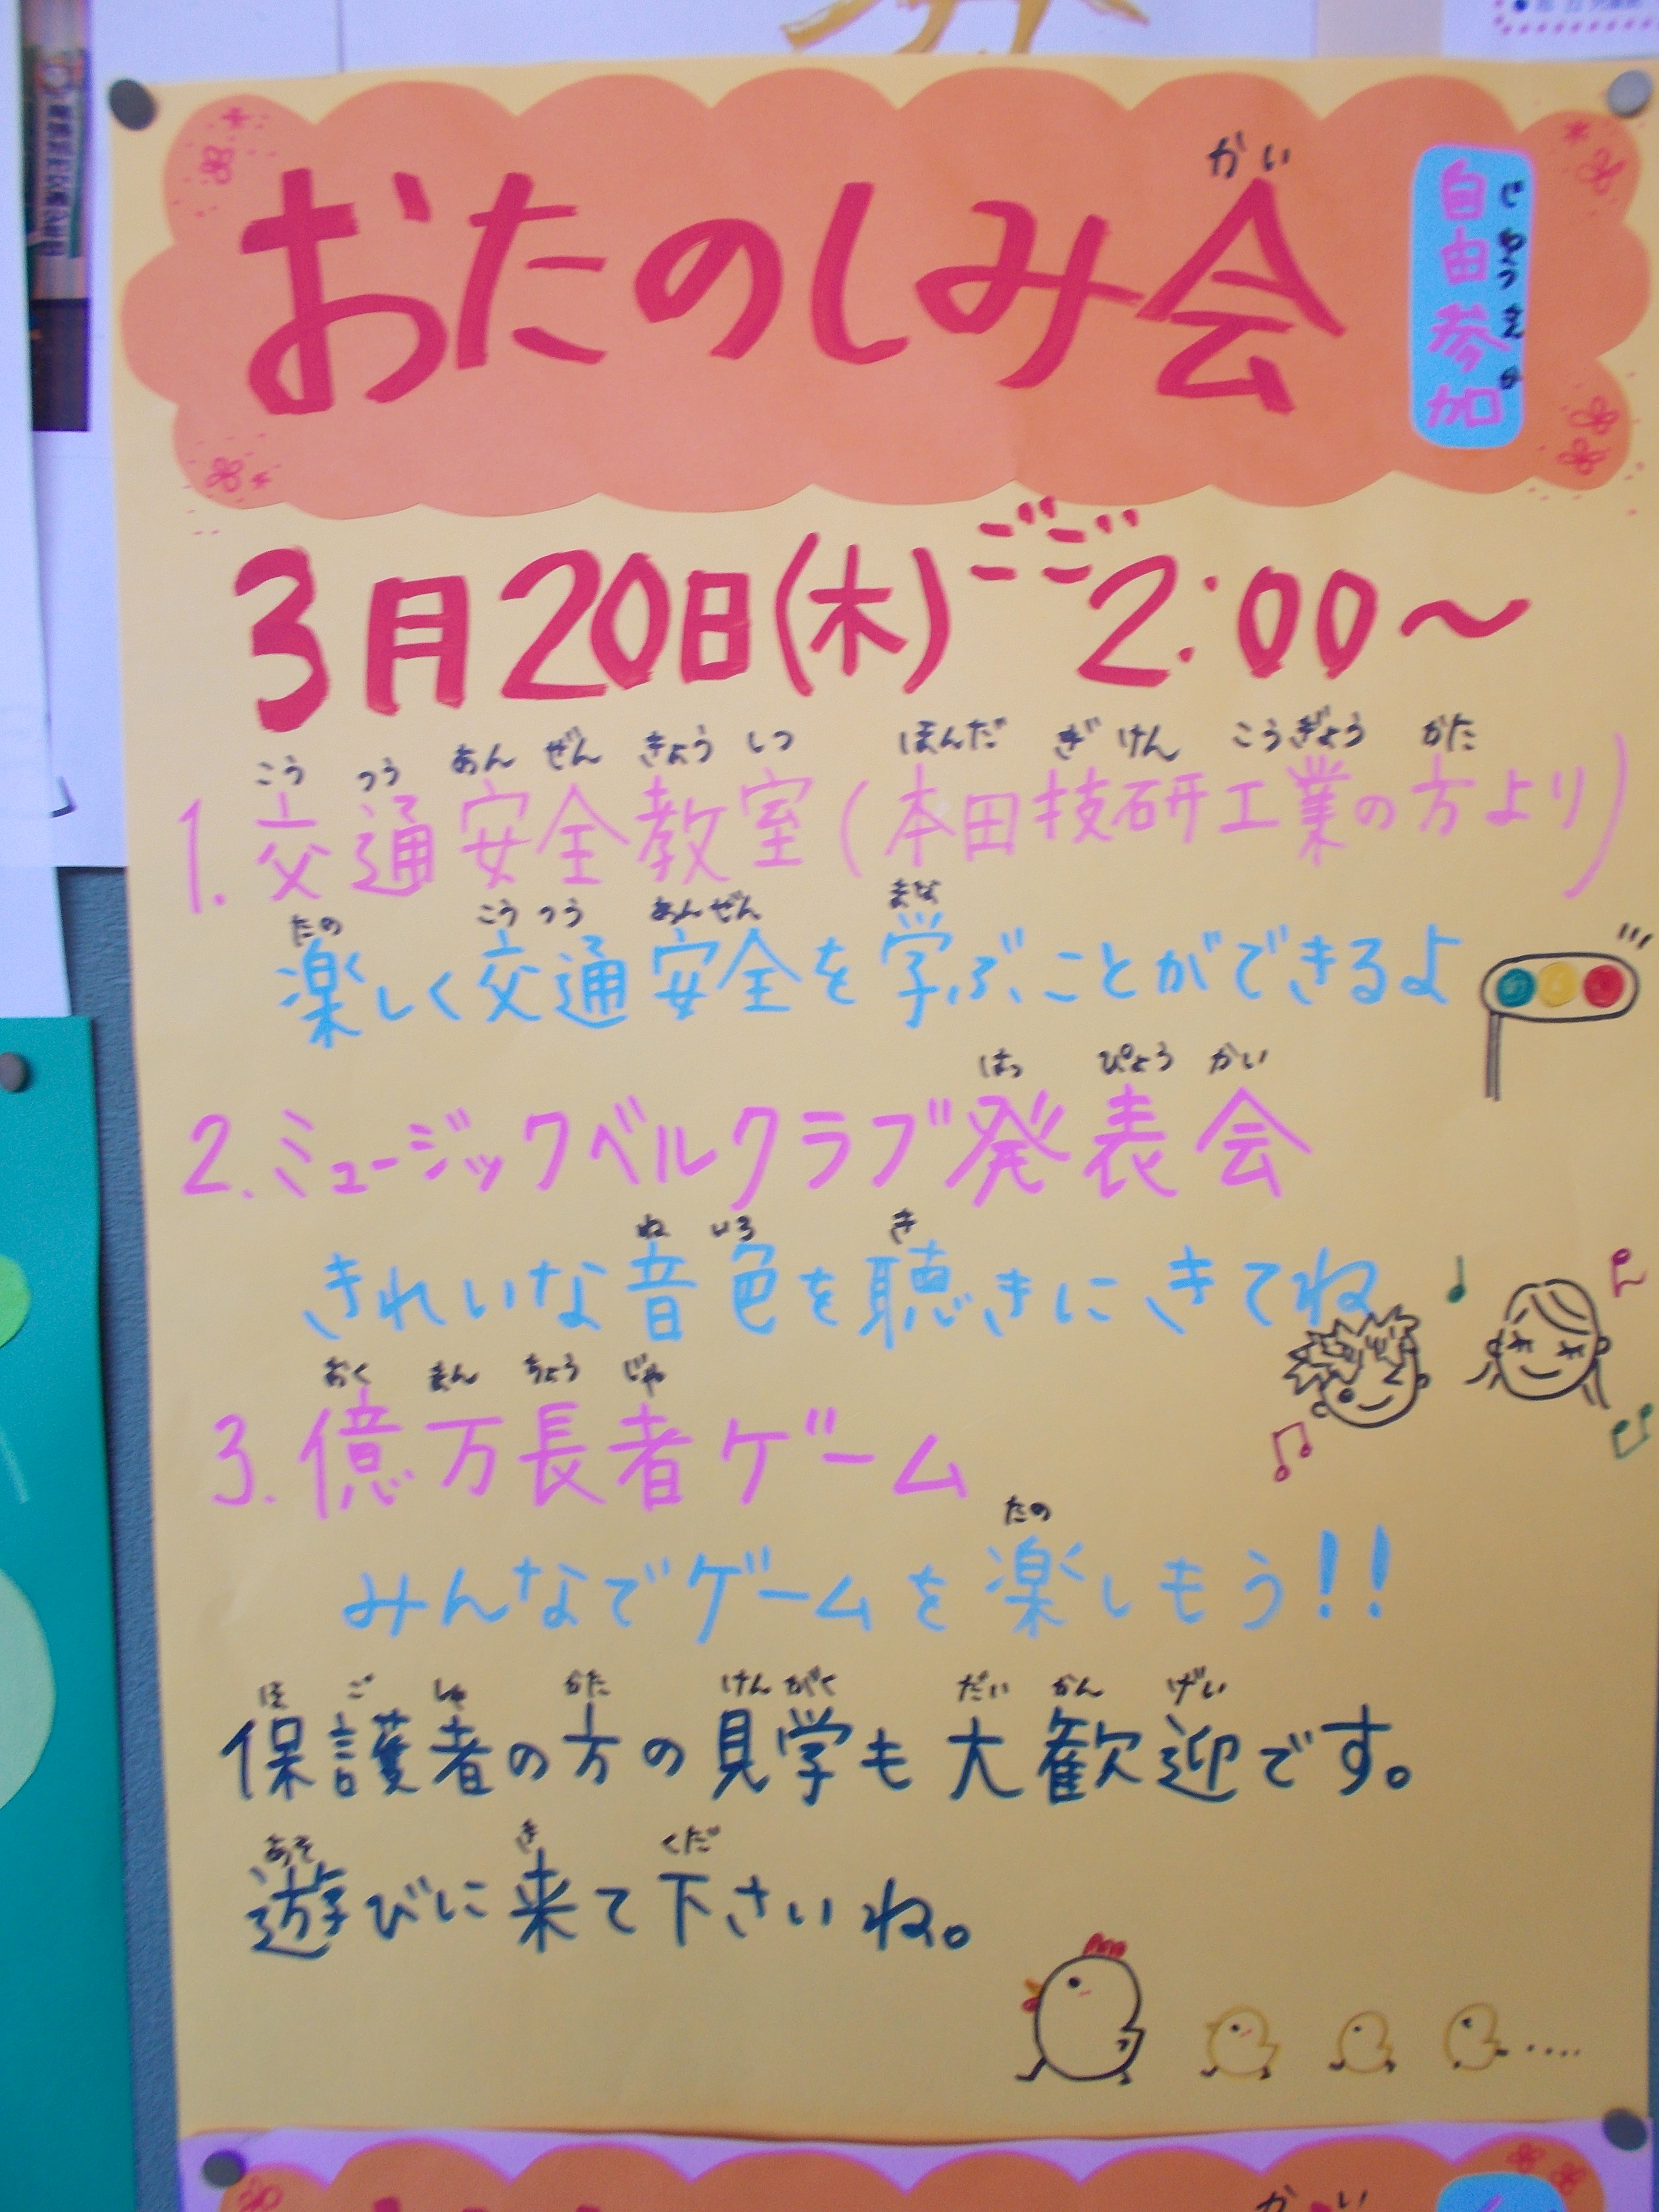 かい
おたのしみ会
じゆうさんか
自由参加
3月20日(木)ごご2:00～
こうつうあんぜんきょうしつ ほんだぎけんこうぎょう かた
1.交通安全教室(本田技研工業の方より)
たの こうつうあんぜん まな
楽しく交通安全を学ぶことができるよ
はっぴょうかい
2.ミュージックベルクラブ発表会
ねいろ き
きれいな音色を聴きにきてね
おくまんちょうじゃ
3.億万長者ゲーム
たの
みんなでゲームを楽しもう!!
ほごしゃ かた けんがく だいかんげい
保護者の方の見学も大歓迎です。
あそ き くだ
遊びに来て下さいね。
かい